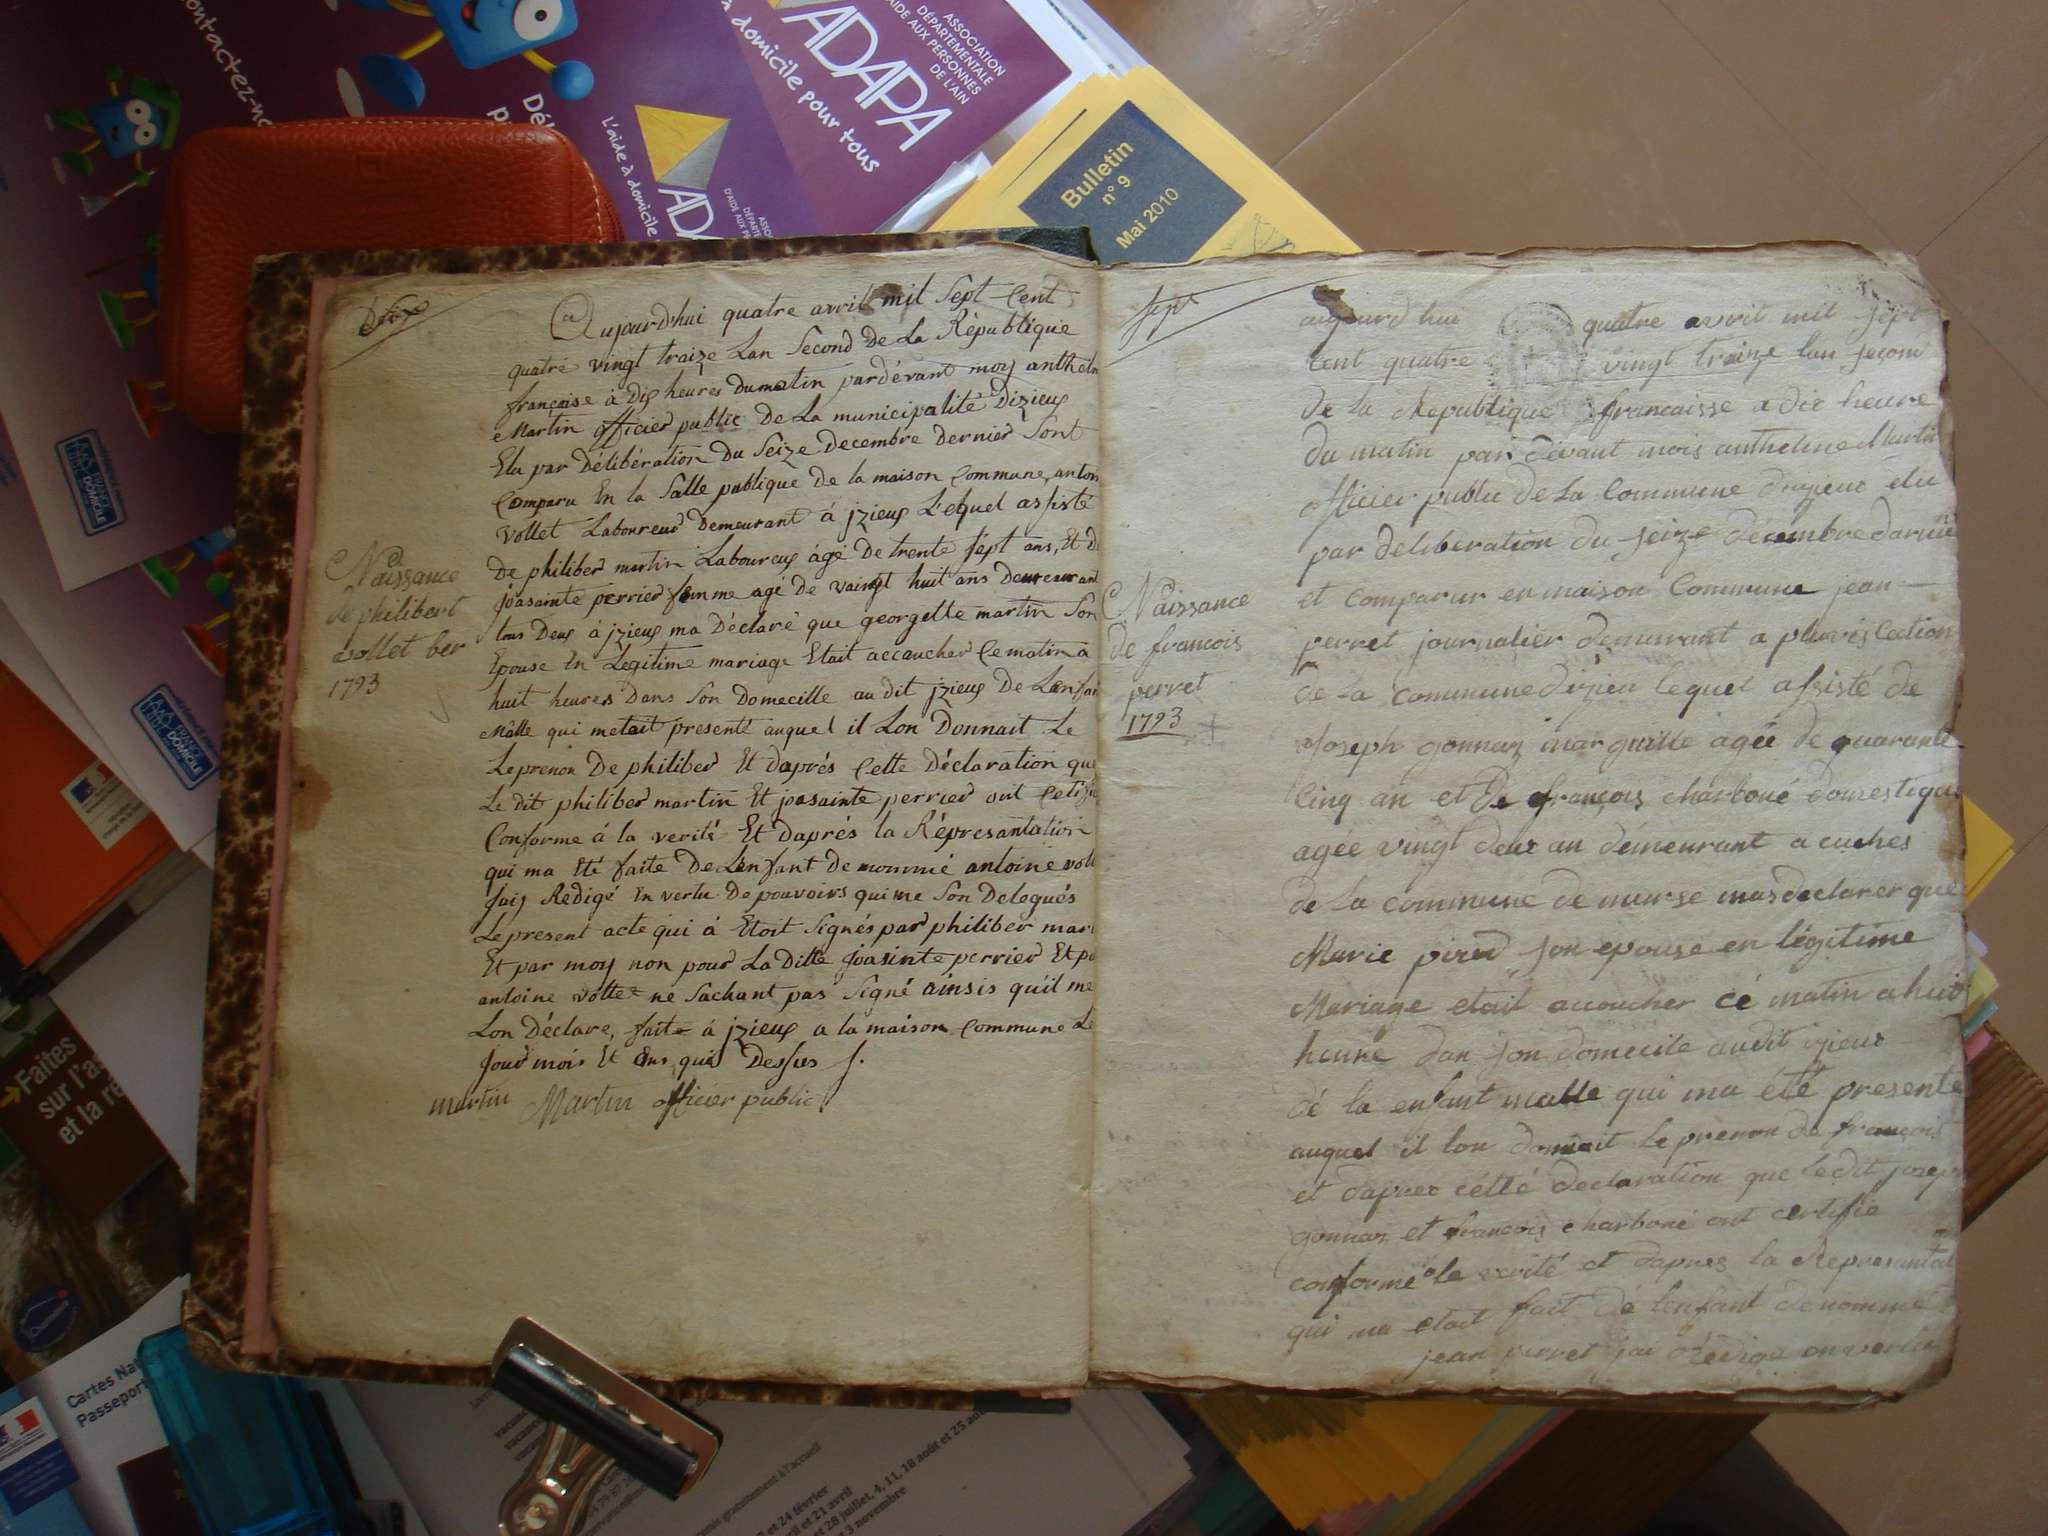 contactez-no
ADAPA
ASSOCIATION
DÉPARTEMENTALE
D'AIDE AUX PERSONNES
DE L'AIN
à domicile pour tous
L'aide à domicile
Bulletin
n° 9
Mai 2010
Aujourd'hui quatre avril mil Sept Cent
quatre vingt traize Lan Second de La République
françaïse à Dix heures Du matin pardévant moy anthelm
e Martin officier public De La municipalité Dizieux
Elu par Délibération Du Seize Decembre Dernier Sont
Comparu En la Salle publique De la maison Commune, anton
Vollet Laboureur Demeurant à jzieux Lequel assisté
De philiber martin Laboureux âgé De trente Sept ans, Et D
joasainte perrier femme agé De vaingt huit ans Demeurant
tous Deux à jzieux ma Déclaré que georgette martin Son
Epouse En Legitime mariage Etait accaucher Ce matin à
huit heures Dans Son Domecille au dit jzieux De Lenfan
Mâlle qui metait presenté auquel il Lon Donnait Le
Le prenon De philiber Et Daprés Cette Déclaration que
Le dit philiber martin Et joasainte perrier ont Cetifi
Conforme à la verité Et Daprés la Réprésantation
qui ma Eté faite De Lenfant De nommé antoine voll
Jaij Rédigé En vertu De pouvoirs qui me Son Delegués
Le present acte qui à Etoit Signés par philiber mar
Et par moy non pour La Ditte Joasinte perrier Et po
antoine vollet ne Sachant pas Signé ainsis qu'il me
Lon Déclare, faite à jzieux a la maison Commune Le
Jour mois Et Ans que Dessus
martin Martin officier public
Naissance
de philibert
vollet ber
1793
sept
aujourd hui quatre avril mil sept
cent quatre vingt traize lan second
de la Republique francaisse a dix heure
du matin par devant mois anthelme Martin
officier public de La Commune dizieux elu
par deliberation du seize decembre darnie
et comparur en maison Commune jean
perret journalier demeurant a pluvis Cection
de La commune dizieu lequel assisté de
Joseph gonnaz marguille agée de quarante
Cinq an et De françois charboné domestique
agée vingt deux an demeurant a cuches
de La commune de murse mas declarer que
Marie son epouse en légitime
Mariage etait accoucher cé matin a huit
heure dan son domecile audit izieux
dé la enfant malle qui ma été presente
auquel il lon donnait Le prenon de françois
et daprez cétté declaration que le dit jozep
gonnaz et françois charboné ont certifié
conforme a le verité et daprez la Représantat
qui ma etait fait dé lenfant dénommé
jean perret jai Rédigé en vertu
Naissance
de francois
perret
1793
Faites
sur l'a
et la ré
Cartes Nat
Passeport
gratuitement à l'accueil
24 février
et 21 avril
et 28 juillet, 4, 11, 18 août et 25 aoû
3 novembre